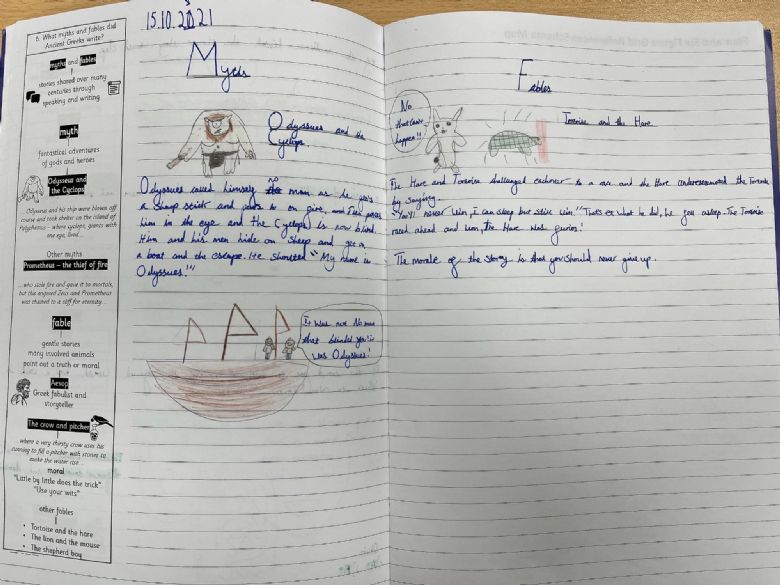 6. What myths and fables did
Ancient Greeks write?
myths and fables
stories shared over many
centuries through
speaking and writing
myth
fantastical adventures
of gods and heroes
Odysseus and
the Cyclops
Odysseus and his ship were blown off
course and took shelter on the island of
Polyphemus – where cyclops, giants with
one eye, lived...
Other myths
Prometheus – the thief of fire
...who stole fire and gave it to mortals,
but this angered Zeus and Prometheus
was chained to a cliff for eternity...
fable
gentle stories
many involved animals
point out a truth or moral
Aesop
Greek fabulist and
storyteller
The crow and pitcher
...where a very thirsty crow uses his
cunning to fill a pitcher with stones to
make the water rise...
moral
"Little by little does the trick"
"Use your wits"
other fables
• Tortoise and the hare
• The lion and the mouse
• The shepherd boy
15.10.2021
Myths
Odyssues and the
Cyclops
Odyssues called himself no man as he gets
a sharp stick and puts is on fire, and then pokes
him in the eye and the Cyclops is now blind.
Him and his men hide on sheep and get on
a boat and the escape. He shouted "My name is
Odyssues!"
It was not No man
that blinded you it
was Odyssues!
Fables
No
that can't
happen!!
Tortoise and the Hare
The Hare and Tortoise challanged eachother to a race and the Hare underestimated the Tortoise
by saying,
"You'll never win, i can sleep but still win." That's what he did, he fell asleep. The Tortoise
raced ahead and won, The Hare was furios!
The morale of the story is that you should never give up.